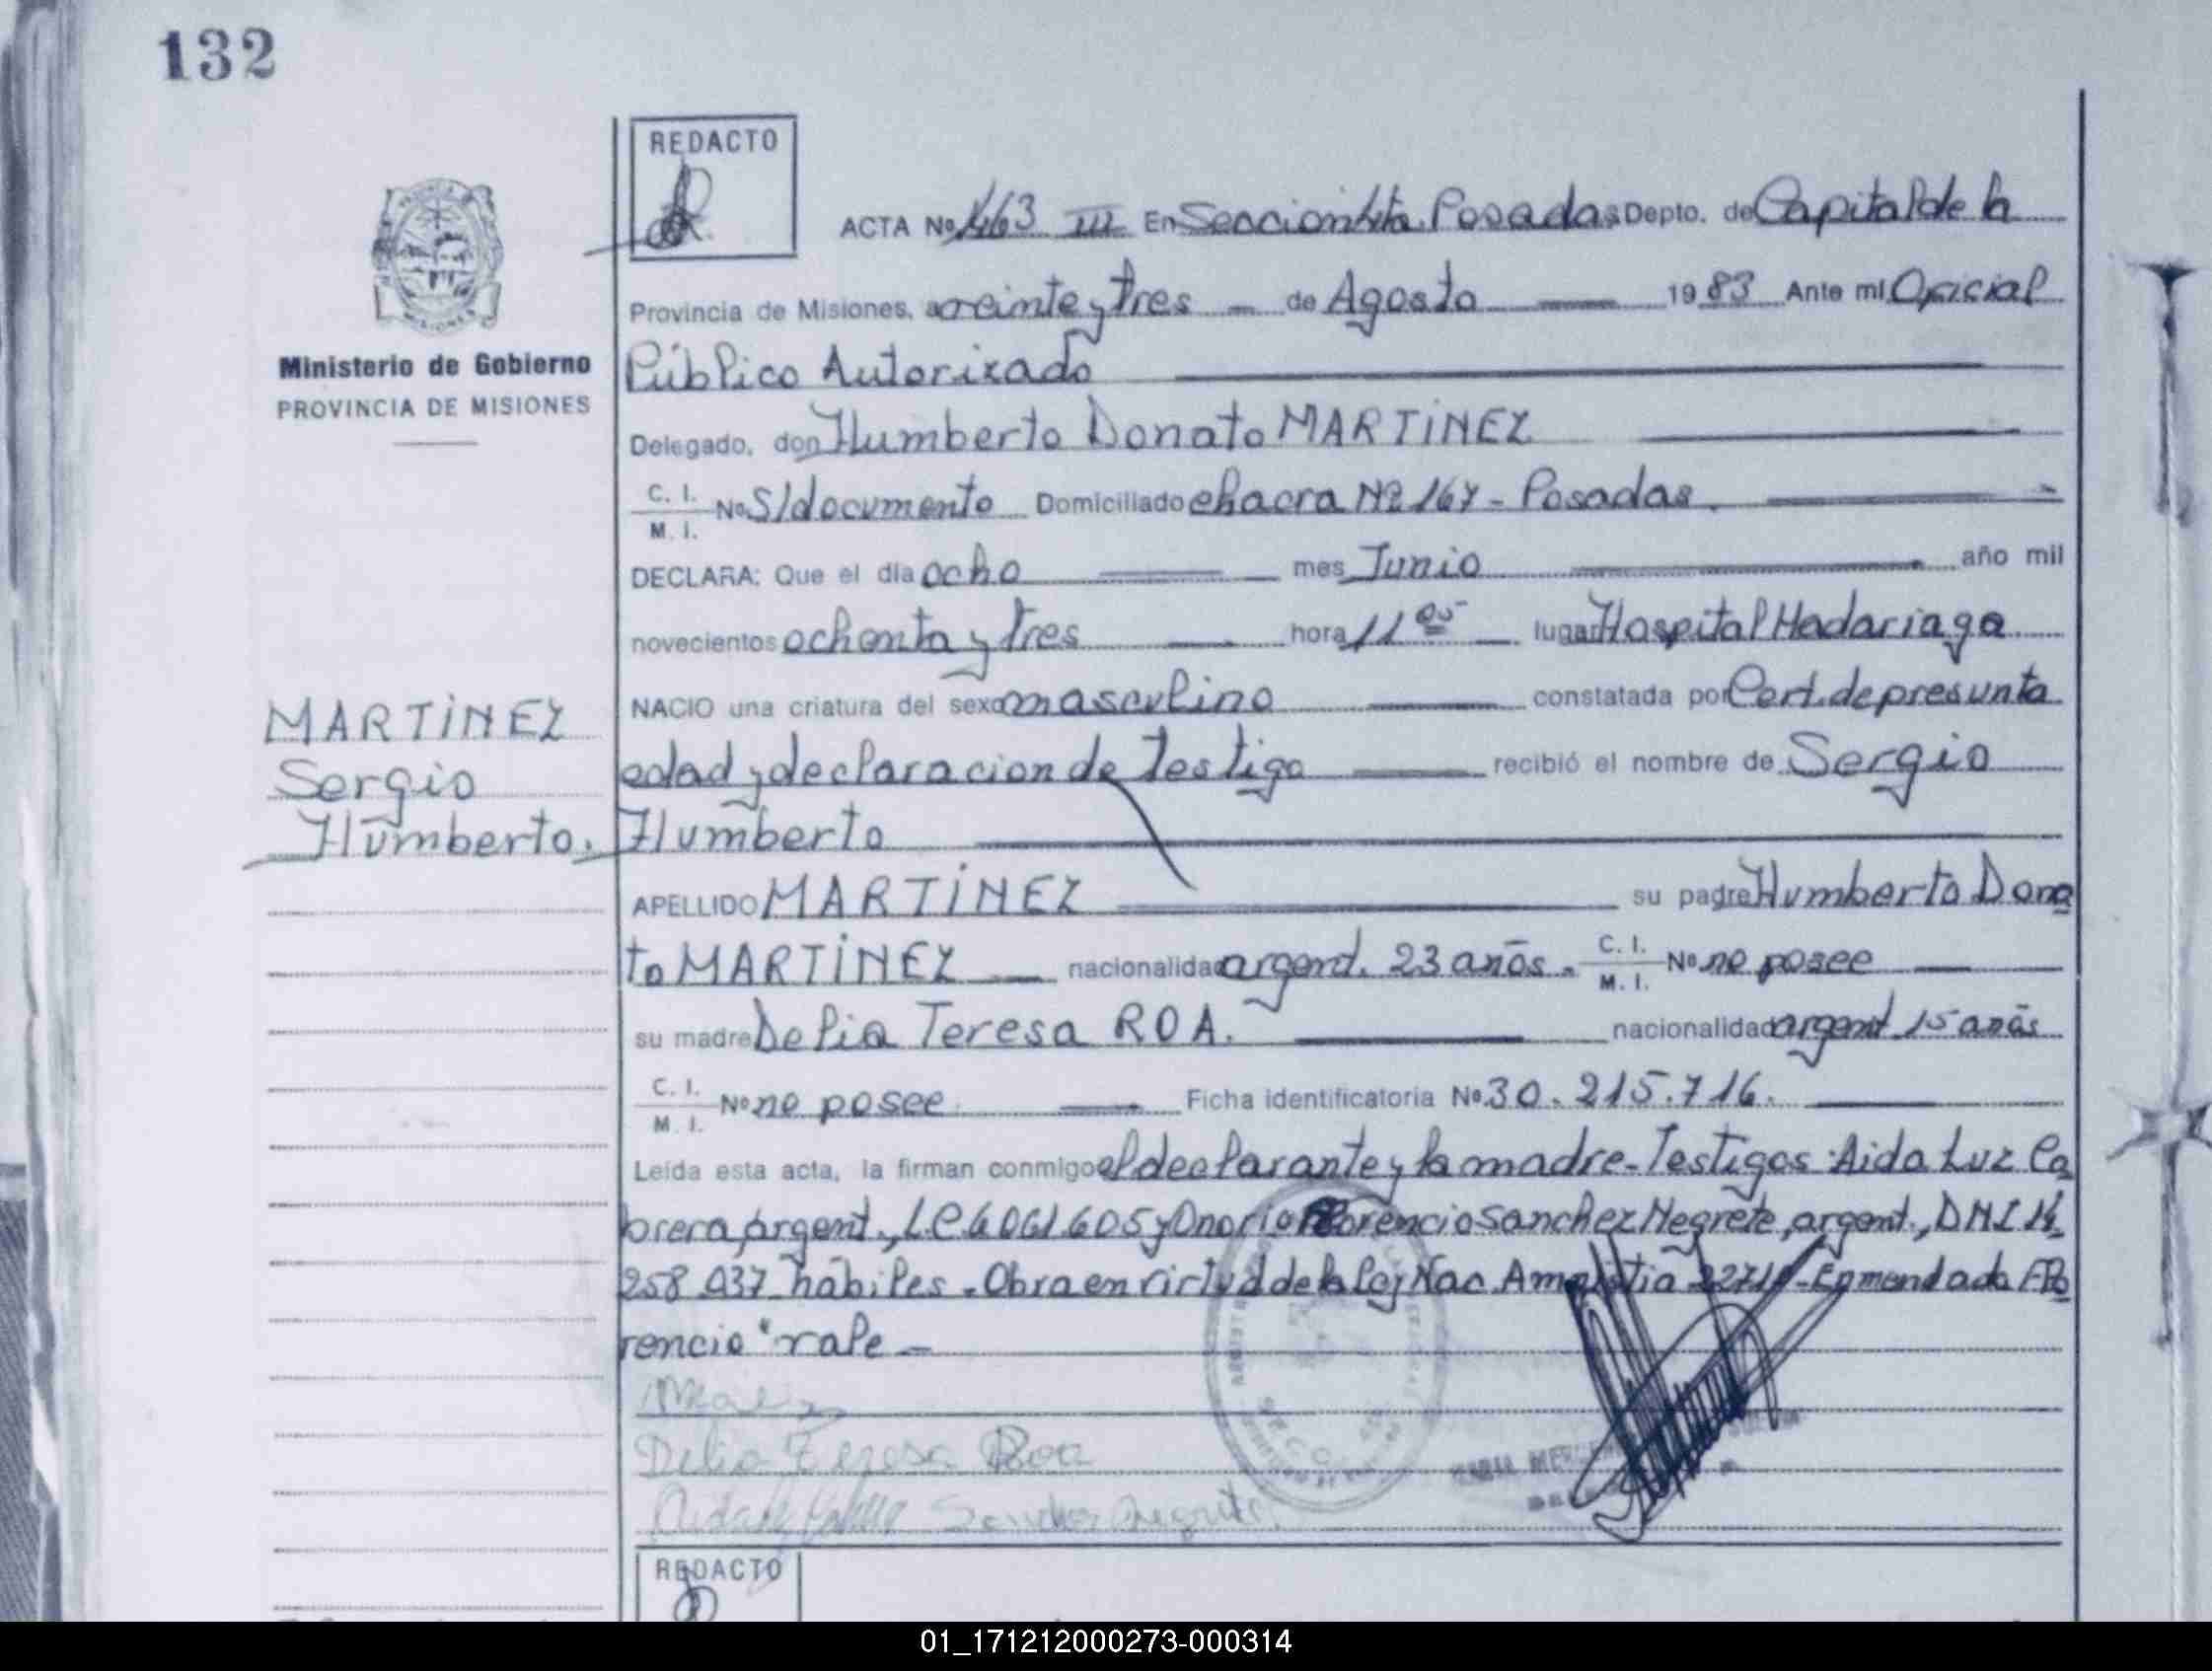 132
REDACTO
ACTA No 463 III En Seccion 4ta. Posadas Depto. de Capital de la
Provincia de Misiones, a veinte y tres de Agosto 19 83 Ante mi Oficial
Público Autorizado
Ministerio de Gobierno
PROVINCIA DE MISIONES
Delegado, don Humberto Donato MARTINEZ
C. I. M. I. No S/documento Domiciliado chacra Nº 167 - Posadas.
DECLARA: Que el día ocho mes Junio año mil
novecientos ochenta y tres hora 11 05 lugar Hospital Madariaga
NACIO una criatura del sexo masculino constatada por Cert. de presunta
edad y declaracion de testigo recibió el nombre de Sergio
Humberto
MARTINEZ
Sergio
Humberto.
APELLIDO MARTINEZ su padre Humberto Dona
to MARTINEZ nacionalidad argent. 23 años. C. I. M. I. No no posee
su madre Delia Teresa ROA. nacionalidad argent 15 años
C. I. M. I. No no posee Ficha identificatoria No 30.215.716.
Leída esta acta, la firman conmigo el declarante y la madre - Testigos: Aida Luz Ca
brera, argent., L.C 6061.605 y Onorio Florencio Sanchez Negrete, argent., DNI 14.
258.037 habiles - Obra en virtud de la ley Nac. Amnistia - Enmendado Flo
rencio "vale -
Delia Teresa Roa
Sanchez Negrete
REDACTO
01_171212000273-000314